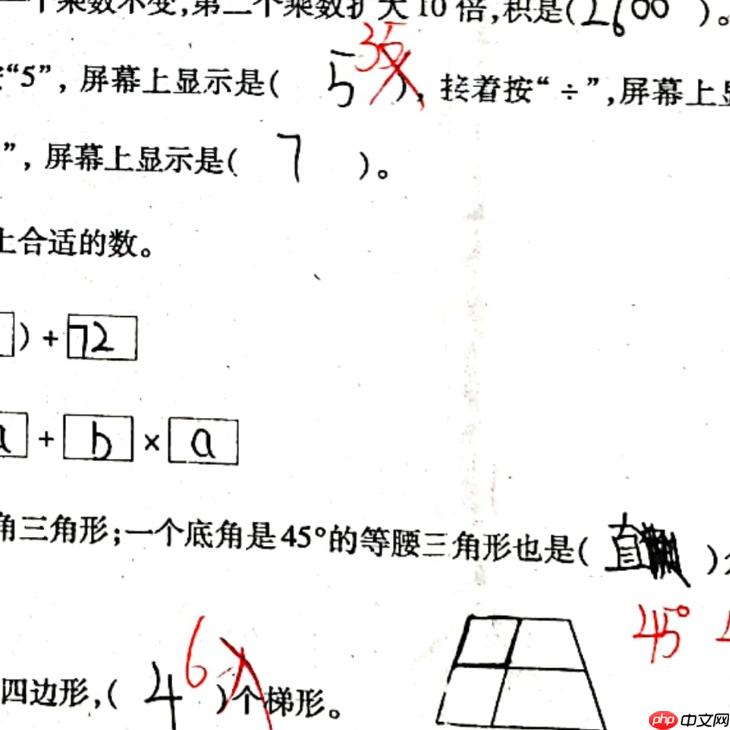 一个乘数不变,第二个乘数扩大10倍,积是(2600)。
“5”,屏幕上显示是( 5 35 ),接着按“÷”,屏幕上显
”,屏幕上显示是( 7 )。
上合适的数。
)+72
a+b×a
角三角形;一个底角是45°的等腰三角形也是(直)
45°
四边形,( 4 6 )个梯形。
php中文网